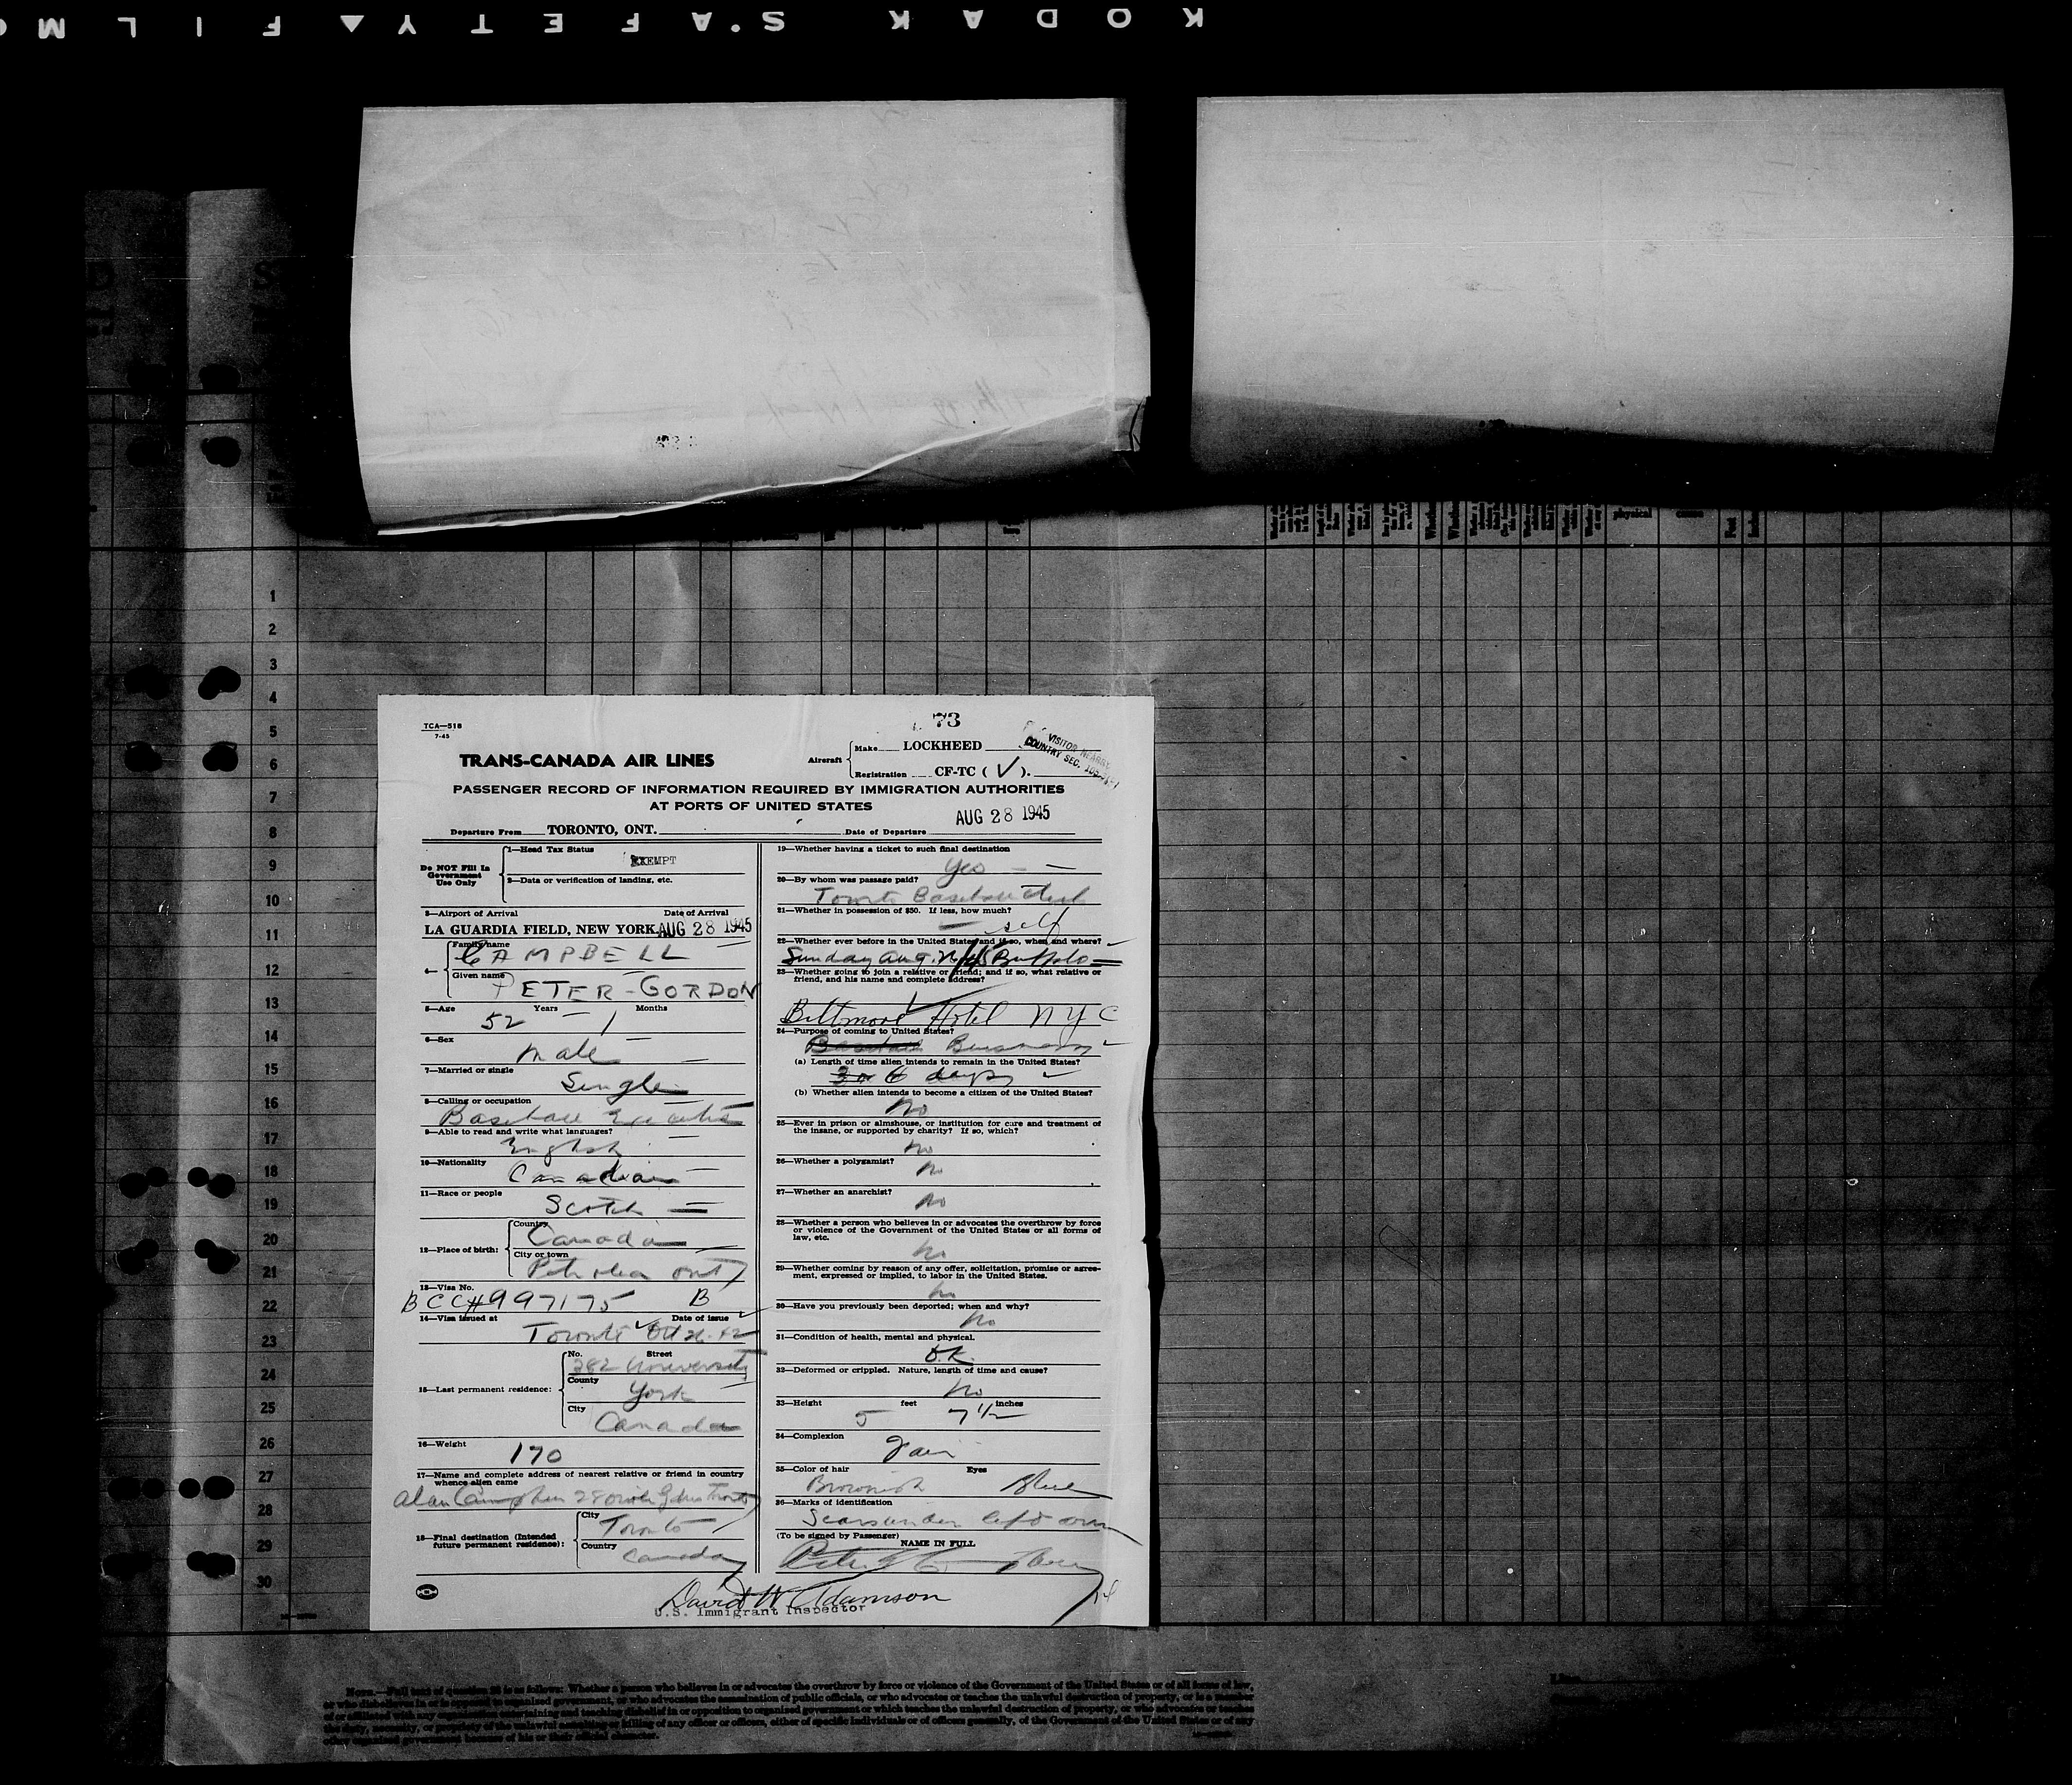 KODAK S'AFETY FILM
TCA—518
7-45
73
TRANS-CANADA AIR LINES
Aircraft
Make LOCKHEED
Registration CF-TC ( V ).
VISITOR NEARBY
COUNTRY SEC.
PASSENGER RECORD OF INFORMATION REQUIRED BY IMMIGRATION AUTHORITIES
AT PORTS OF UNITED STATES
AUG 28 1945
Departure From TORONTO, ONT. Date of Departure
Do NOT Fill In
Government
Use Only
1—Head Tax Status
EXEMPT
2—Data or verification of landing, etc.
3—Airport of Arrival Date of Arrival
LA GUARDIA FIELD, NEW YORK. AUG 28 1945
4—
Family name
CAMPBELL
Given name
PETER-GORDON
5—Age Years Months
52 1
6—Sex
Male
7—Married or single
Single
8—Calling or occupation
Baseball Executive
9—Able to read and write what languages?
English
10—Nationality
Canadian
11—Race or people
Scotch
12—Place of birth:
Country
Canada
City or town
Petrolea Ont
13—Visa No.
BCC#997175 B
14—Visa issued at Date of issue
Toronto Oct 26-42
15—Last permanent residence:
No. Street
382 University
County
York
City
Canada
16—Weight
170
17—Name and complete address of nearest relative or friend in country
whence alien came
Alan Campbell 28
18—Final destination (Intended
future permanent residence):
City
Toronto
Country
Canada
19—Whether having a ticket to such final destination
Yes
20—By whom was passage paid?
Toronto Baseball Club
21—Whether in possession of $50. If less, how much?
self
22—Whether ever before in the United States and if so, when and where?
Sunday Aug. Buffalo
23—Whether going to join a relative or friend; and if so, what relative or
friend, and his name and complete address?
Biltmore Hotel NYC
24—Purpose of coming to United States?
Baseball Business
(a) Length of time alien intends to remain in the United States?
3 or 6 days
(b) Whether alien intends to become a citizen of the United States?
No
25—Ever in prison or almshouse, or institution for care and treatment of
the insane, or supported by charity? If so, which?
No
26—Whether a polygamist?
No
27—Whether an anarchist?
No
28—Whether a person who believes in or advocates the overthrow by force
or violence of the Government of the United States or all forms of
law, etc.
No
29—Whether coming by reason of any offer, solicitation, promise or agree-
ment, expressed or implied, to labor in the United States.
No
30—Have you previously been deported; when and why?
No
31—Condition of health, mental and physical.
O.K.
32—Deformed or crippled. Nature, length of time and cause?
No
33—Height feet inches
5 7 1/2
34—Complexion
Fair
35—Color of hair Eyes
Brownish Blue
36—Marks of identification
Scars under left arm
(To be signed by Passenger)
NAME IN FULL
Peter G Campbell
David W Adamson
U.S. Immigrant Inspector
physical
cause
1
2
3
4
5
6
7
8
9
10
11
12
13
14
15
16
17
18
19
20
21
22
23
24
25
26
27
28
29
30
NOTE.—Full text of question 28 is as follows: Whether a person who believes in or advocates the overthrow by force or violence of the Government of the United States or of all forms of law,
or who disbelieves in or is opposed to organized government, or who advocates the assassination of public officials, or who advocates or teaches the unlawful destruction of property, or is a member
of or affiliated with any organization entertaining and teaching disbelief in or opposition to organized government or which teaches the unlawful destruction of property, or who advocates or teaches
the duty, necessity, or propriety of the unlawful assaulting or killing of any officer or officers, either of specific individuals or of officers generally, of the Government of the United States or of any
other organized government because of his or their official character.